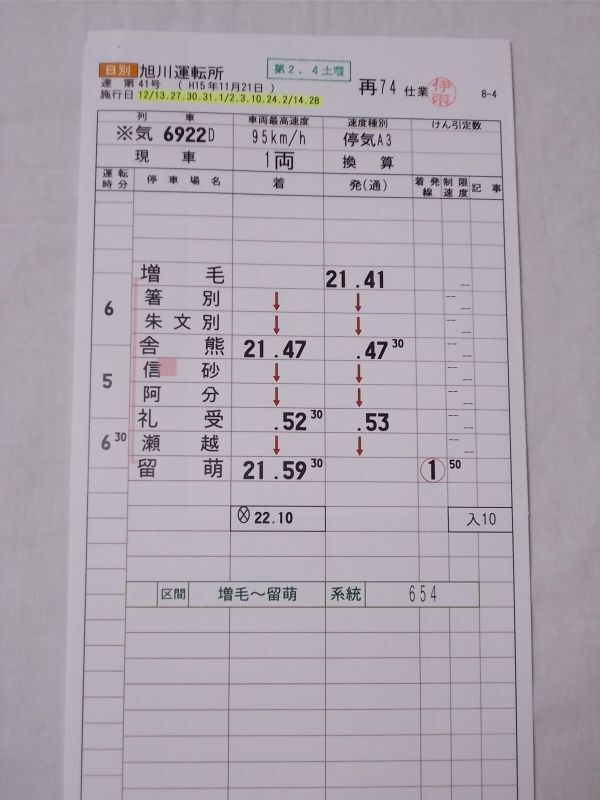 日別 旭川運転所 第2.4土増
達 第41号 ( H15年11月21日 ) 再74 仕業 8-4
施行日 12/13.27.30.31.1/2.3.10.24.2/14.28
列 車 車両最高速度 速度種別 けん引定数
※気 6922D 95km/h 停気A3
現 車 1両 換 算
運転時分 停 車 場 名 着 発(通) 着発線 制限速度 記 事
増 毛 21.41
6 箸 別 ↓ ↓
朱 文 別 ↓ ↓
舎 熊 21.47 .47 30
5 信 砂 ↓ ↓
阿 分 ↓ ↓
礼 受 .52 30 .53
6 30 瀬 越 ↓ ↓
留 萌 21.59 30 1 50
⊗ 22.10 入10
区間 増毛~留萌 系統 654